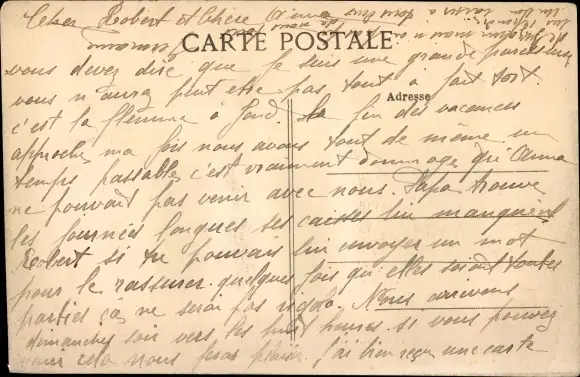 Cher Robert et Chère Anna
CARTE POSTALE
vous devez dire que je suis une grande paresseuse
vous n'aurez peut etre pas tout a fait tort.
Adresse
c'est la flemme à fond. la fin des vacances
approche, ma fois nous avons tout de même un
temps passable, c'est vraiment dommage qu'Anna
ne pouvait pas venir avec nous. Papa trouve
les journées longues ses caisses lui manquent
Robert si tu pouvais lui envoyer un mot
pour le rassurer. quelques fois qu'elles soient toutes
parties ça ne serai pas rigolo. Nous arrivons
dimanche soir vers les huit heures. si vous pouvez
venir cela nous feras plaisir. j'ai bien reçu une carte